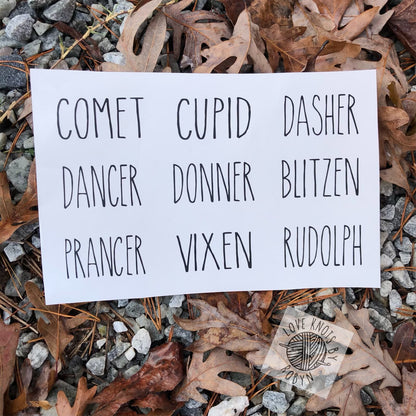 COMET CUPID DASHER
DANCER DONNER BLITZEN
PRANCER VIXEN RUDOLPH
LOVE KNOTS BY ROBYN